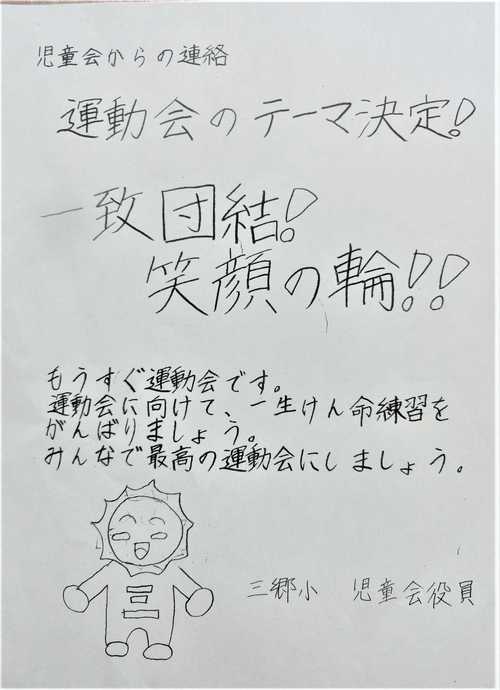 児童会からの連絡
運動会のテーマ決定!
一致団結!
笑顔の輪!!
もうすぐ運動会です。
運動会に向けて、一生けん命練習を
がんばりましょう。
みんなで最高の運動会にしましょう。
三
三郷小 児童会役員